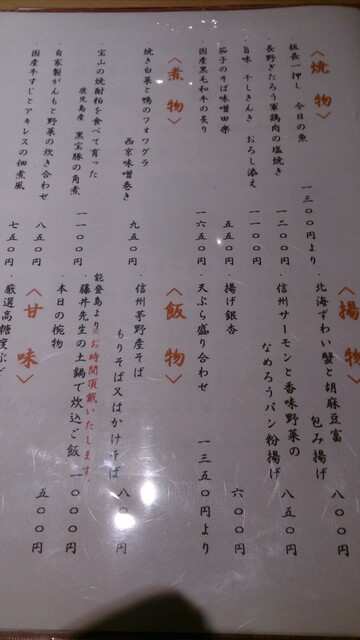 〈焼物〉
・板長一押し 今日の魚 一三〇〇円より
・長野ぎたろう軍鶏肉の塩焼き 一二〇〇円
・旨味 干しきんき おろし添え 一一〇〇円
・茄子のそば味噌田楽 五五〇円
・国産黒毛和牛の炙り 一六五〇円
〈煮物〉
焼き白菜と鴨のフォワグラ
西京味噌巻き 九五〇円
・宝山の焼酎粕を食べて育った
鹿児島産 黒宝豚の角煮 一一〇〇円
・自家製がんもと野菜の炊き合わせ 八五〇円
・国産牛すじとアキレスの佃煮風 七五〇円
〈揚物〉
・北海ずわい蟹と胡麻豆富
包み揚げ 八〇〇円
・信州サーモンと香味野菜の
なめろうパン粉揚げ 八五〇円
・揚げ銀杏 六〇〇円
・天ぷら盛り合わせ 一三五〇円より
〈飯物〉
・信州茅野産そば
もりそば又はかけそば 八〇〇円
能登島より※お時間頂戴いたします。
・藤井先生の土鍋で炊込ご飯 一〇〇〇円
・本日の椀物 五〇〇円
〈甘味〉
・厳選高糖度